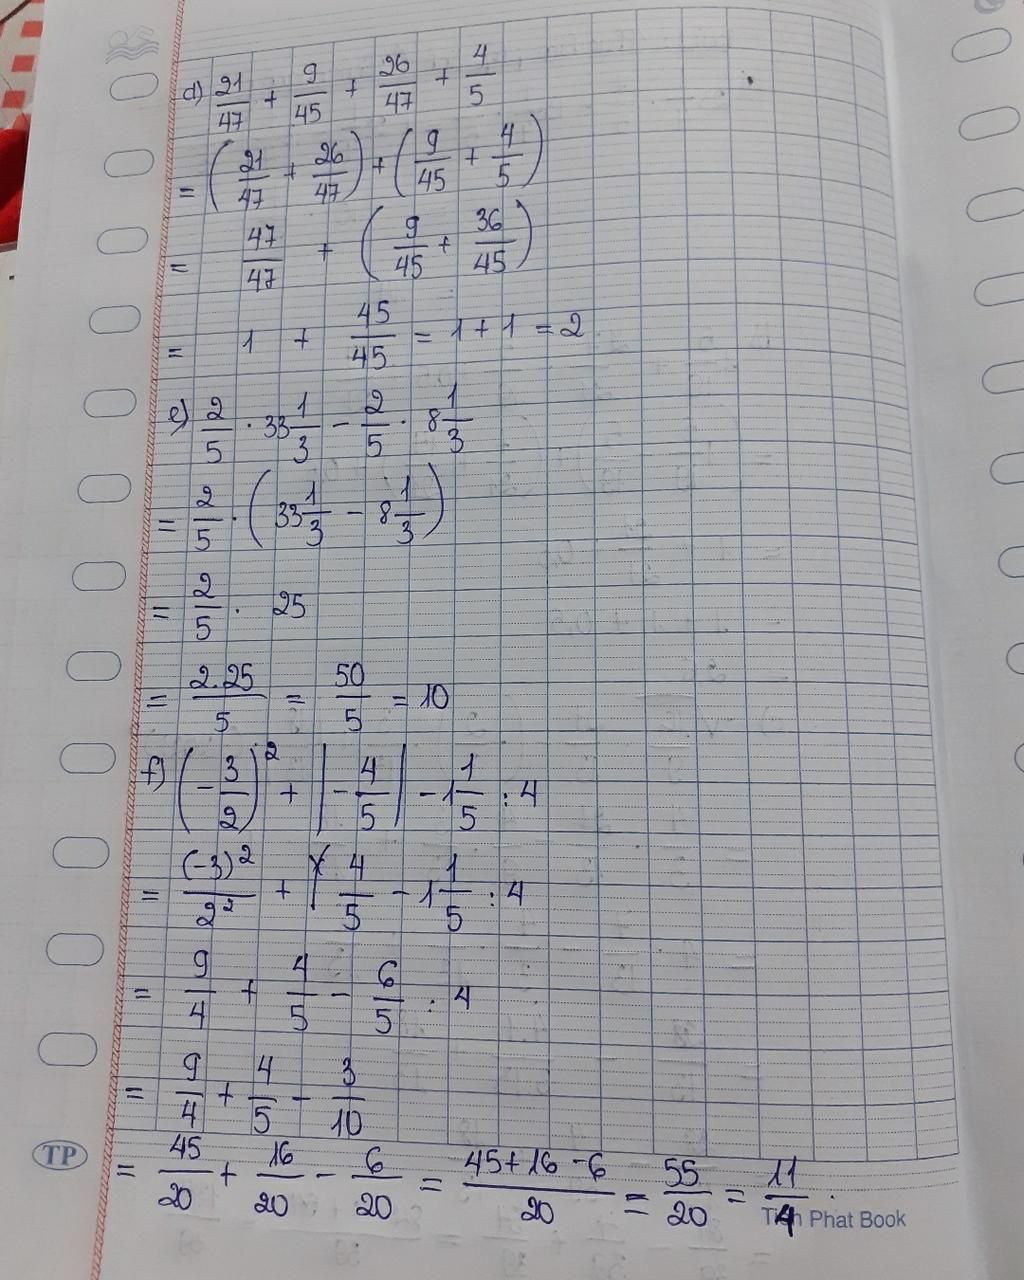 d) 21/47 + 9/45 + 26/47 + 4/5
= (21/47 + 26/47) + (9/45 + 4/5)
= 47/47 + (9/45 + 36/45)
= 1 + 45/45 = 1 + 1 = 2
e) 2/5 . 33 1/3 - 2/5 . 8 1/3
= 2/5 . (33 1/3 - 8 1/3)
= 2/5 . 25
= 2.25/5 = 50/5 = 10
f) (-3/2)² + |-4/5| - 1 1/5 : 4
= (-3)²/2² + 4/5 - 1 1/5 : 4
= 9/4 + 4/5 - 6/5 : 4
= 9/4 + 4/5 - 3/10
= 45/20 + 16/20 - 6/20 = 45+16-6/20 = 55/20 = 11/4.
TP
Tiến Phát Book